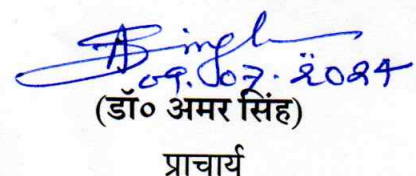 ASingh
09.07.2024
(डॉ० अमर सिंह)
प्राचार्य